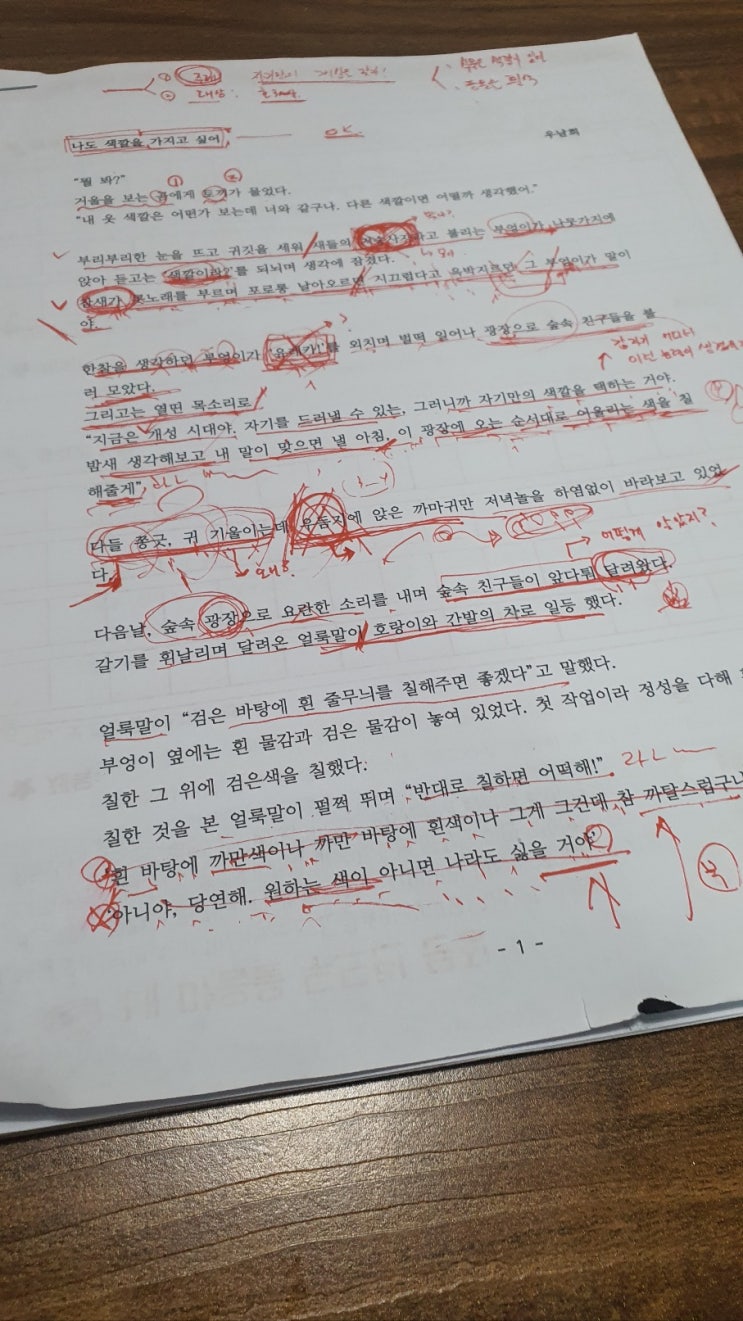 ① 주제 자기만의 개성을 갖자!
② 대상:
나도 색깔을 가지고 싶어 OK. 우남희
"뭘 봐?" ① ②
거울을 보는 곰에게 토끼가 물었다.
"내 옷 색깔은 어떤가 보는데 너와 같구나. 다른 색깔이면 어떨까 생각했어."
부리부리한 눈을 뜨고 귀깃을 세워 새들의 라고 불리는 부엉이가 나뭇가지에
앉아 듣고는 '색깔이라'를 되뇌며 생각에 잠겼다.
참새가 봄노래를 부르며 포로롱 날아오르면 지끄럽다고 윽박지르던 그 부엉이가 말이
야.
한참을 생각하던 부엉이가 '유레카!'를 외치며 벌떡 일어나 광장으로 숲속 친구들을 불
러 모았다.
그리고는 열띤 목소리로
"지금은 개성 시대야. 자기를 드러낼 수 있는, 그러니까 자기만의 색깔을 택하는 거야.
밤새 생각해보고 내 말이 맞으면 낼 아침, 이 광장에 오는 순서대로 어울리는 색을 칠
해줄게"
다들 쫑긋, 귀 기울이는데 우듬지에 앉은 까마귀만 저녁놀을 하염없이 바라보고 있었
다.
왜?
어떻게 알았지?
다음날, 숲속 광장으로 요란한 소리를 내며 숲속 친구들이 앞다퉈 달려왔다.
갈기를 휘날리며 달려온 얼룩말이 호랑이와 간발의 차로 일등 했다.
얼룩말이 "검은 바탕에 흰 줄무늬를 칠해주면 좋겠다"고 말했다.
부엉이 옆에는 흰 물감과 검은 물감이 놓여 있었다. 첫 작업이라 정성을 다해
칠한 그 위에 검은색을 칠했다.
칠한 것을 본 얼룩말이 펄쩍 뛰며 "반대로 칠하면 어떡해!"
'흰 바탕에 까만색이나 까만 바탕에 흰색이나 그게 그건데 참 까탈스럽구나
'아니야, 당연해. 원하는 색이 아니면 나라도 싫을 거야'
- 1 -